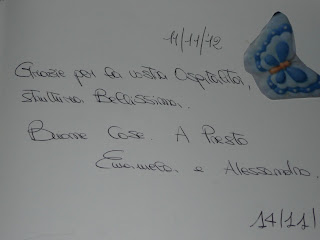 11/11/12
Grazie per la vostra Ospitalità,
struttura Bellissima.
Buone Cose. A Presto
Emanuela e Alessandro.
14/11/